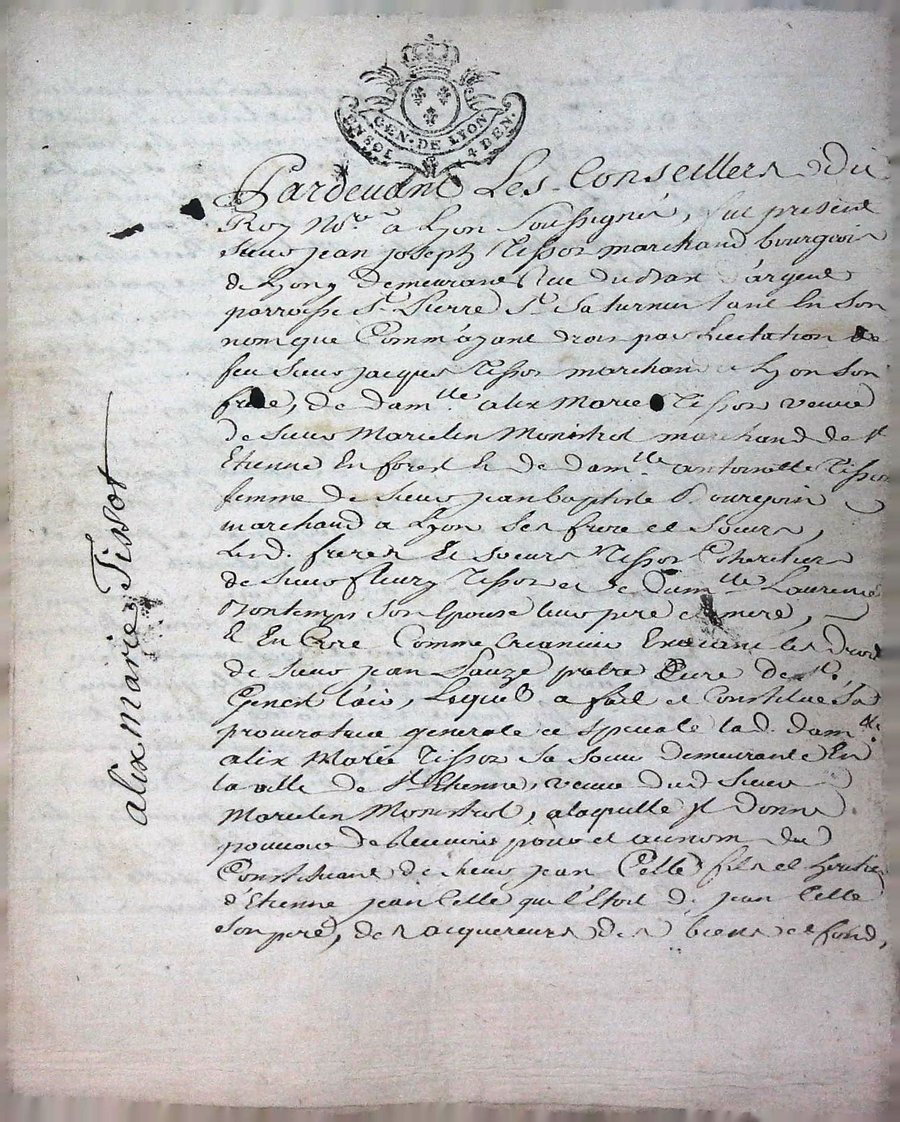 GEN. DE LYON
UN SOL 4 DEN.
Pardevant Les Conseillers Du
Roy No.re a Lyon Soussignés, fut present
Sieur jean joseph Tissot marchand bourgeois
de Lyon Demeurant Rue du
parroisse St. Pierre St. Saturnin tant En Son
nom que Comm'ayant droit par Licitation de
feu Sieur jacques Tissot marchand a Lyon Son
frere, de dam.lle alix Marie Tissot veuve
de Sieur Marcelin Monistrol marchand de St
Etienne En forest & de dam.lle antoinette Tissot
femme de Sieur jean baptiste Bourgoin
marchand a Lyon Ses frere et Soeurs,
Lesd. freres Et Soeurs Tissot Coheritiers
de Sieur fleury Tissot et de Dam.lle Laurence
Montemps Son Epouse leurs pere et mere,
& Encore Comme Creancier Exercant les Droits
de Sieur jean Lauze pretre Curé de St.
Genest , Lequel a fait et Constitué Sa
procuratrice generale et Speciale lad. dam.lle
alix Marie Tissot Sa Soeur demeurante En
la ville de St. Etienne, veuve dud Sieur
Marcelin Monistrol, a laquelle Jl donne
pouvoir de Recevoir pour et au nom du
Constituant de Sieur jean Celle fils et heritier
d'Etienne jean Celle qui l'Etoit de jean Celle
Son pere, des acquereurs des biens et fond,
alix marie Tissot